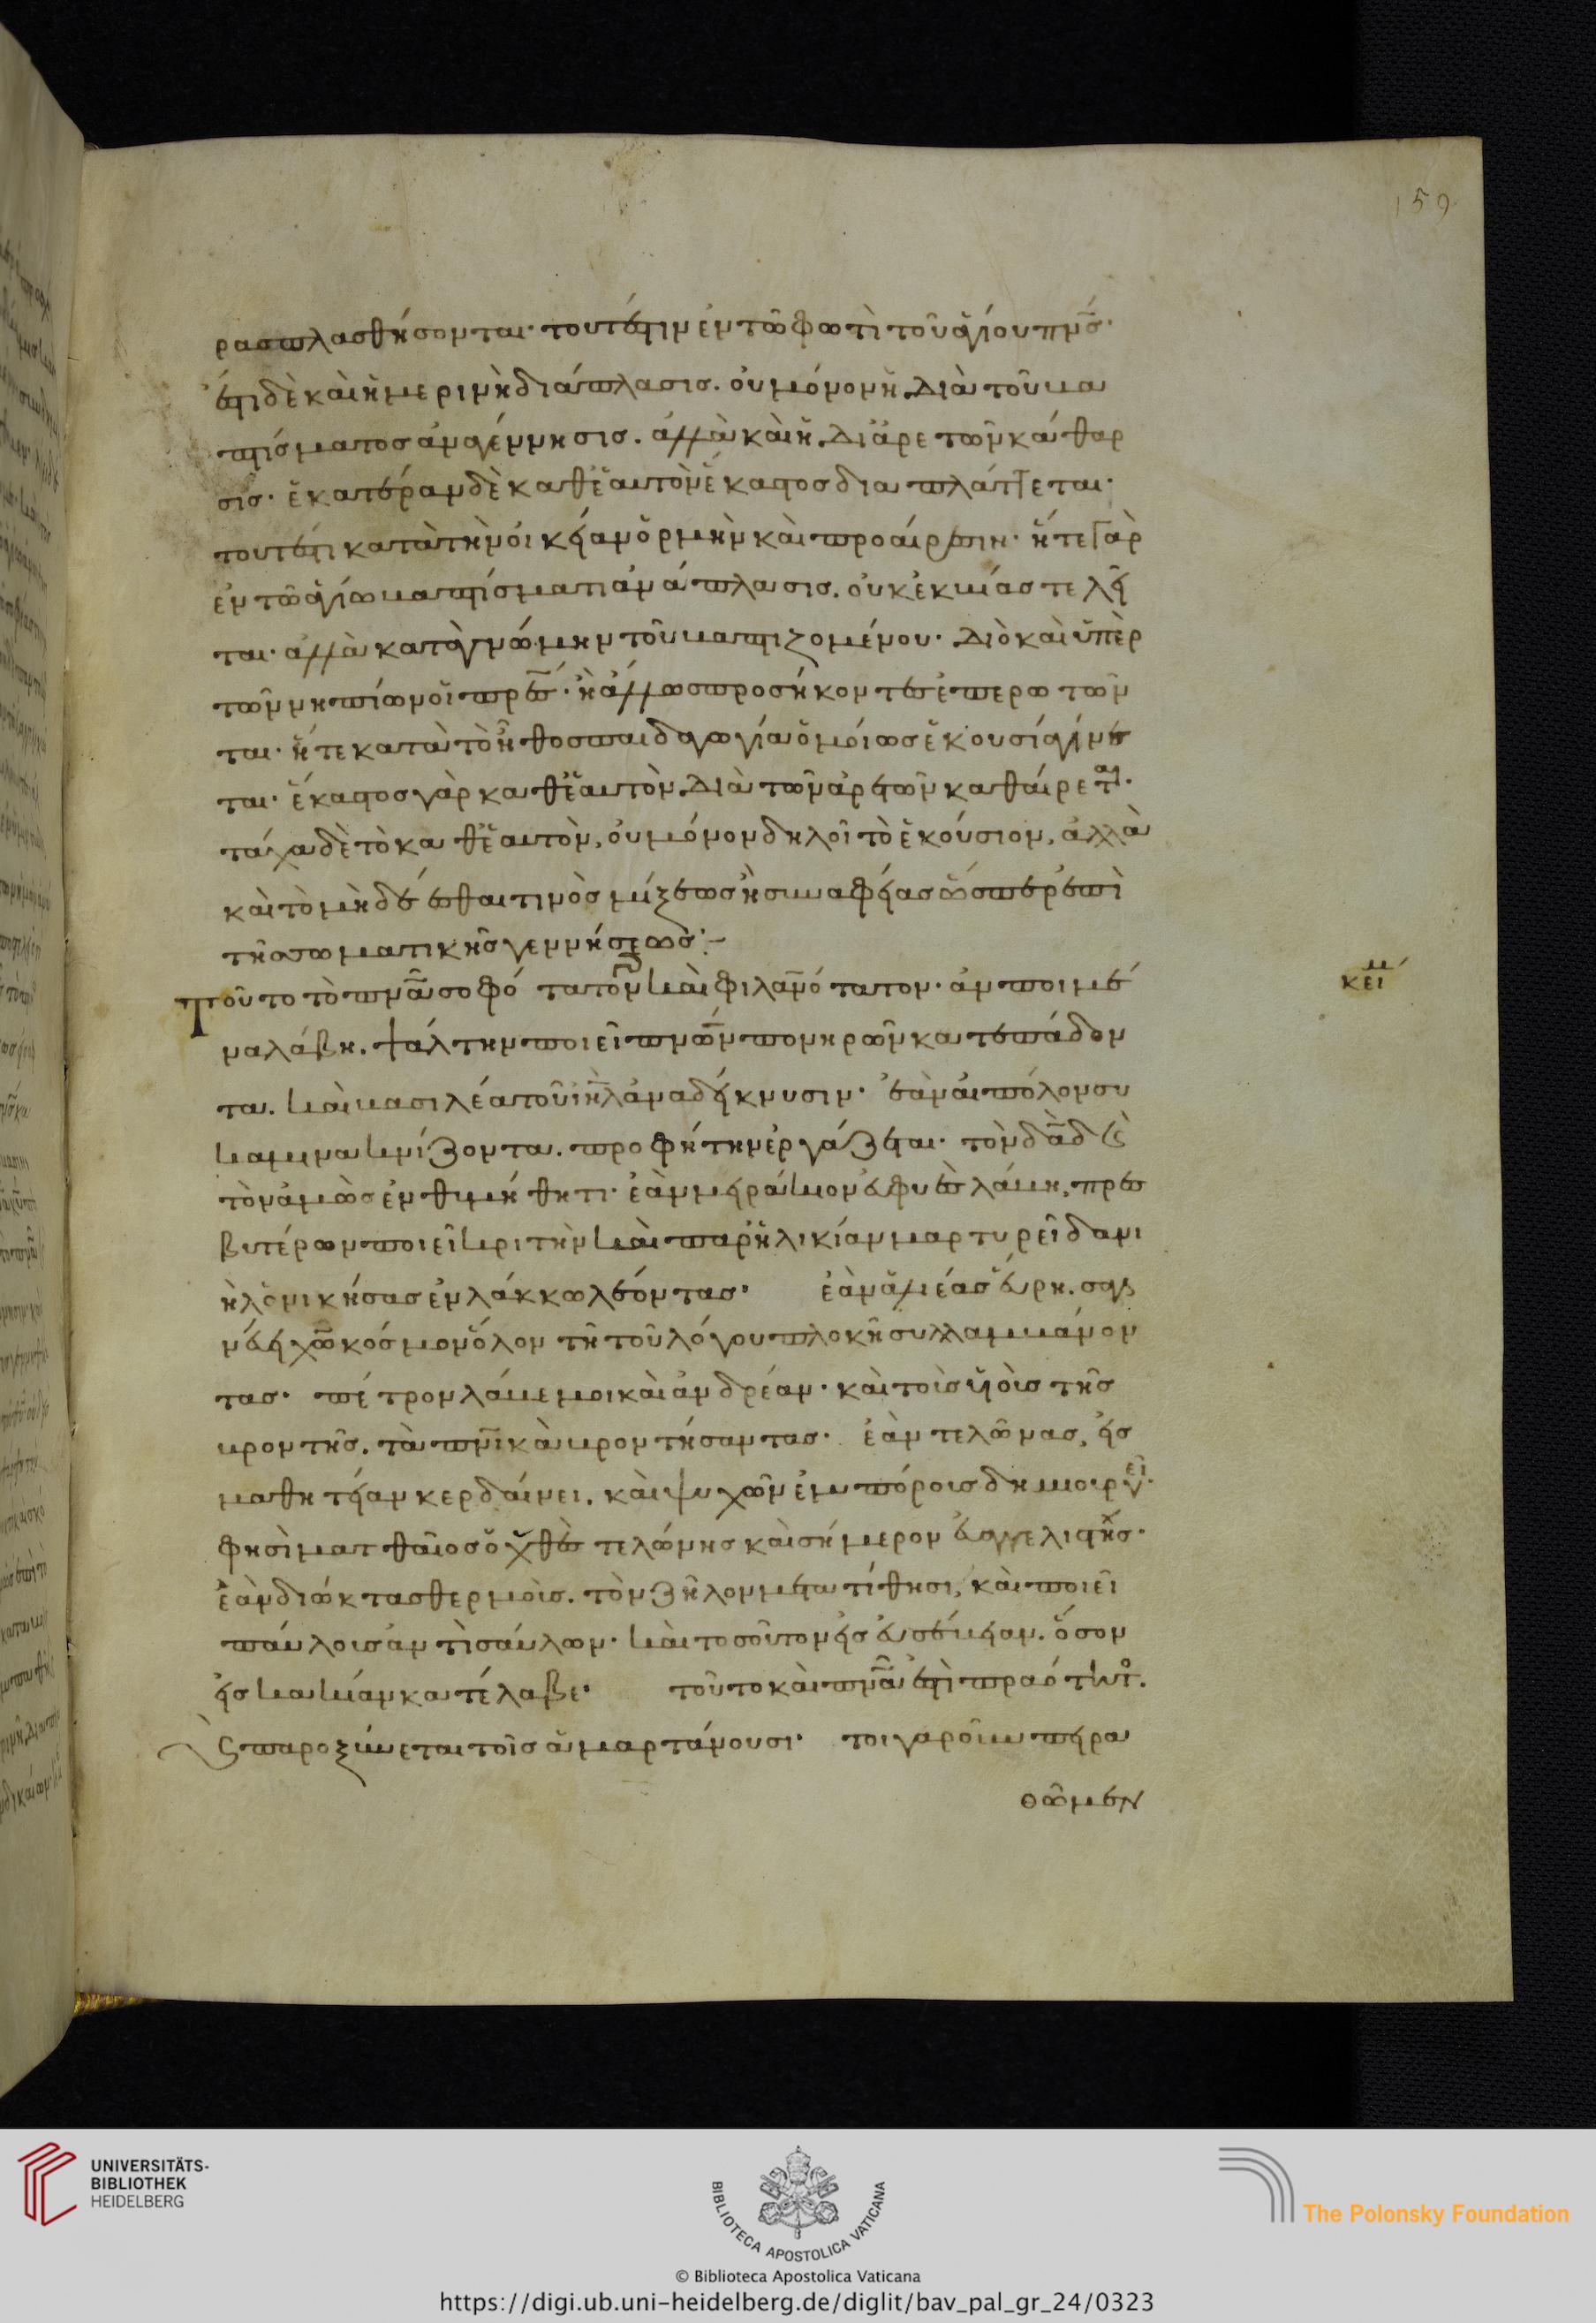 159
ραπλασθήσονται· τουτέστιν ἐν τῶ φωτὶ τοῦ ἁγίου πνς·
ἔστι δὲ καὶ ἡμερινὴ διάπλασις. οὐ μόνον ἡ διὰ τοῦ βα
πτίσματος ἀναγέννησις. ἀλλὰ καὶ ἡ δι' ἀρετῶν κάθαρ
σις· ἑκατέραν δὲ καθ' ἑαυτὸν ἕκαστος διαπλάττεται·
τουτέστι κατὰ τὴν οἰκείαν ὁρμὴν καὶ προαίρεσιν· ἥ τε γὰρ
ἐν τῶ ἁγίω βαπτίσματι ἀνάπλασις. οὐκ ἐκ βίας τελεῖ
ται· ἀλλὰ κατὰ γνώμην τοῦ βαπτιζομένου· διὸ καὶ ὑπὲρ
τῶν νηπίων οἱ πρες· ἢ ἄλλως προσήκοντες ἐπερωτῶν
ται· ἥ τε κατὰ τὸ ἦθος παιδαγωγία ὁμοίως ἑκουσία γίνε
ται· ἕκαστος γὰρ καθ' ἑαυτὸν διὰ τῶν ἀρετῶν καθαίρεται·
τάχα δὲ τὸ καθ' ἑαυτὸν, οὐ μόνον δηλοῖ τὸ ἑκούσιον, ἀλλὰ
καὶ τὸ μὴ δεῖσθαι τινὸς μίξεως ἢ συναφείας ὥσπερ ἐπὶ
τῆς σωματικῆς γεννήσεως·
Τοῦτο τὸ πνα σοφώτατον καὶ φιλανότατον· ἂν ποιμέ
να λάβη. ψάλτην ποιεῖ πνων πονηρῶν κατεπάδον
τα. καὶ βασιλέα τοῦ ιηλ ἀναδείκνυσιν· ἐὰν αἰπόλον συ
καμινα κνίζοντα. προφήτην ἐργάζεται· τὸν δαδ καὶ
τὸν ἀμὼς ἐνθυμήθητι· ἐὰν μειράκιον εὐφυὲς λάβη, πρεσ
βυτέρων ποιεῖ κριτὴν καὶ παρ' ἡλικίαν μαρτυρεῖ δανι
ὴλ ὁ νικήσας ἐν λάκκω λέοντας· ἐὰν ἁλιέας εὕρη. σαγη
νεύει χω κόσμον ὅλον τῆ τοῦ λόγου πλοκῆ συλλαμβάνον
τας· πέτρον λάβε μοι καὶ ἀνδρέαν· καὶ τοὺς υἱοὺς τῆς
βροντῆς. τὰ πνικὰ βροντήσαντας· ἐὰν τελώνας, εἰς
μαθητείαν κερδαίνει. καὶ ψυχῶν ἐμπόρους δημιουργεῖ·
φησὶ ματθαῖος ὁ χθὲς τελώνης καὶ σήμερον εὐαγγελιστής·
ἐὰν διώκτας θερμοὺς. τὸν ζῆλον μετατίθησι, καὶ ποιεῖ
παύλους ἀντὶ σαύλων· καὶ τοσοῦτον εἰς εὐσέβειαν. ὅσον
εἰς κακίαν κατέλαβε· τοῦτο καὶ πνα ἐστὶ πραότητο.
καὶ παροξύνεται τοῖς ἁμαρτάνουσι· τοιγαροῦν πειρα
θῶμεν
κεί
μ
UNIVERSITÄTS-
BIBLIOTHEK
HEIDELBERG
BIBLIOTECA APOSTOLICA VATICANA
The Polonsky Foundation
© Biblioteca Apostolica Vaticana
https://digi.ub.uni-heidelberg.de/diglit/bav_pal_gr_24/0323